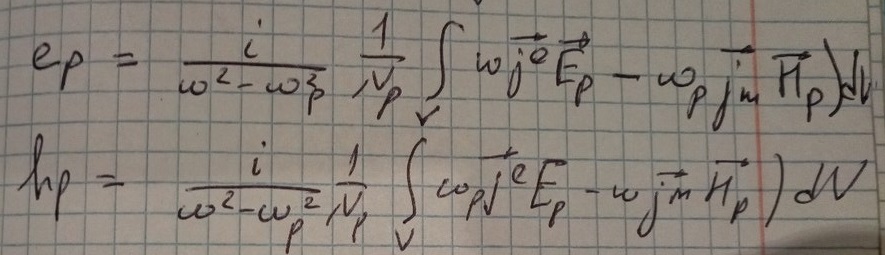 e_p = i/(ω² - ω_p²) 1/N_p ∫_V ω j⃗^e E⃗_p - ω_p j⃗_m H⃗_p) dV
h_p = i/(ω² - ω_p²) 1/N_p ∫_V ω_p j⃗^e E⃗_p - ω j⃗^m H⃗_p) dV